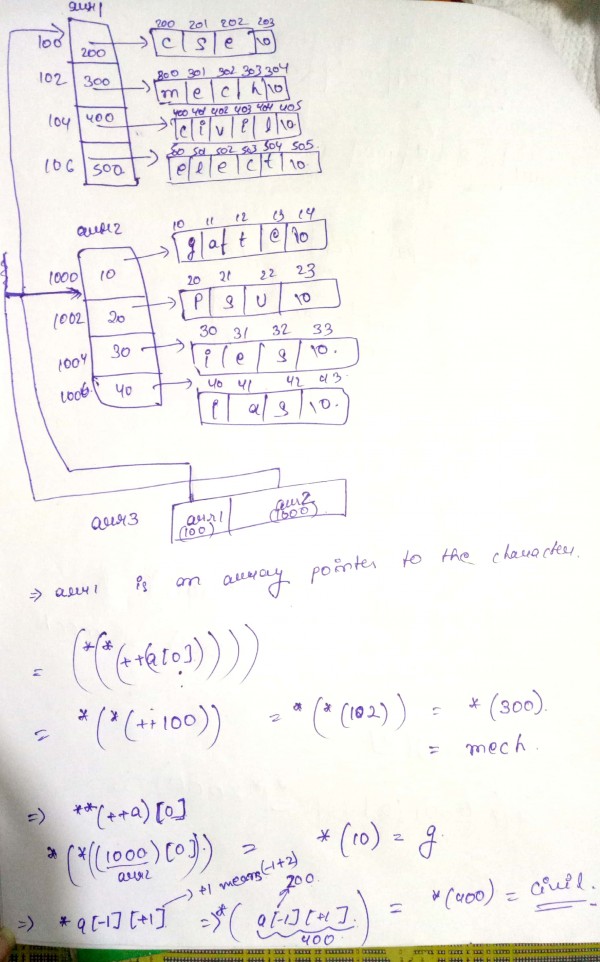 arr1
200 201 202 203
100 200 c s e \0
300 301 302 303 304
102 300 m e c h \0
400 401 402 403 404 405
104 400 c i v i l \0
501 502 503 504 505.
106 500 e l e c t \0.
arr2
10 11 12 13 14
g a t e \0
1000 10
20 21 22 23
1002 20 P S U \0
30 31 32 33
1004 30 i e s \0.
40 41 42 43.
1006 40 i a s \0.
arr3 arr1 (100) arr2 (1000)
⇒ arr1 is an array pointer to the character.
= (*(*(++(a[0]))))
= *(*(++100)) = *(*(102)) = *(300).
= mech.
⇒ **(++a)[0]
*(*((1000)[0])) = *(10) = g.
arr2
+1 means (-1+2)
200.
⇒ *a[-1][+1] ⇒ *(a[-1][+1].) = *(400) = civil.
400